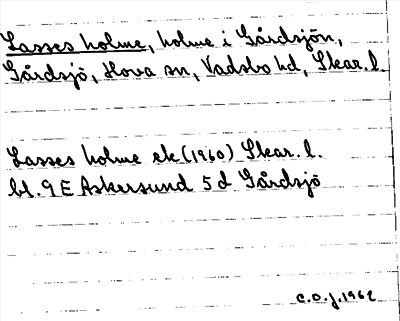 Lasses holme, holme i Gårdsjön,
Gårdsjö, Hova sn, Vadsbo hd, Skar. l.
Lasses holme ek (1960) Skar. l.
bl. 9 E Askersund 5 d Gårdsjö
C.O.J. 1962